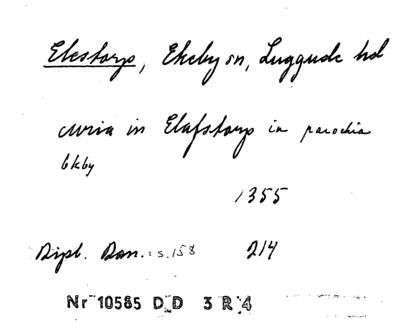 Elestorp, Ekeby sn, Luggude hd
curia in Elafstorp in parochia
Ekby
1355
Dipl. Dan.: s. 158 214
Nr 10585 D D 3 R 4